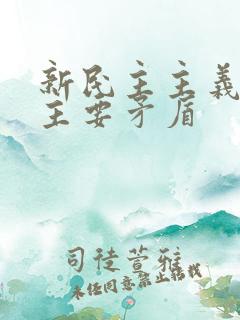 新民主主义
主要矛盾
司徒萱雅
未经同意禁止转载